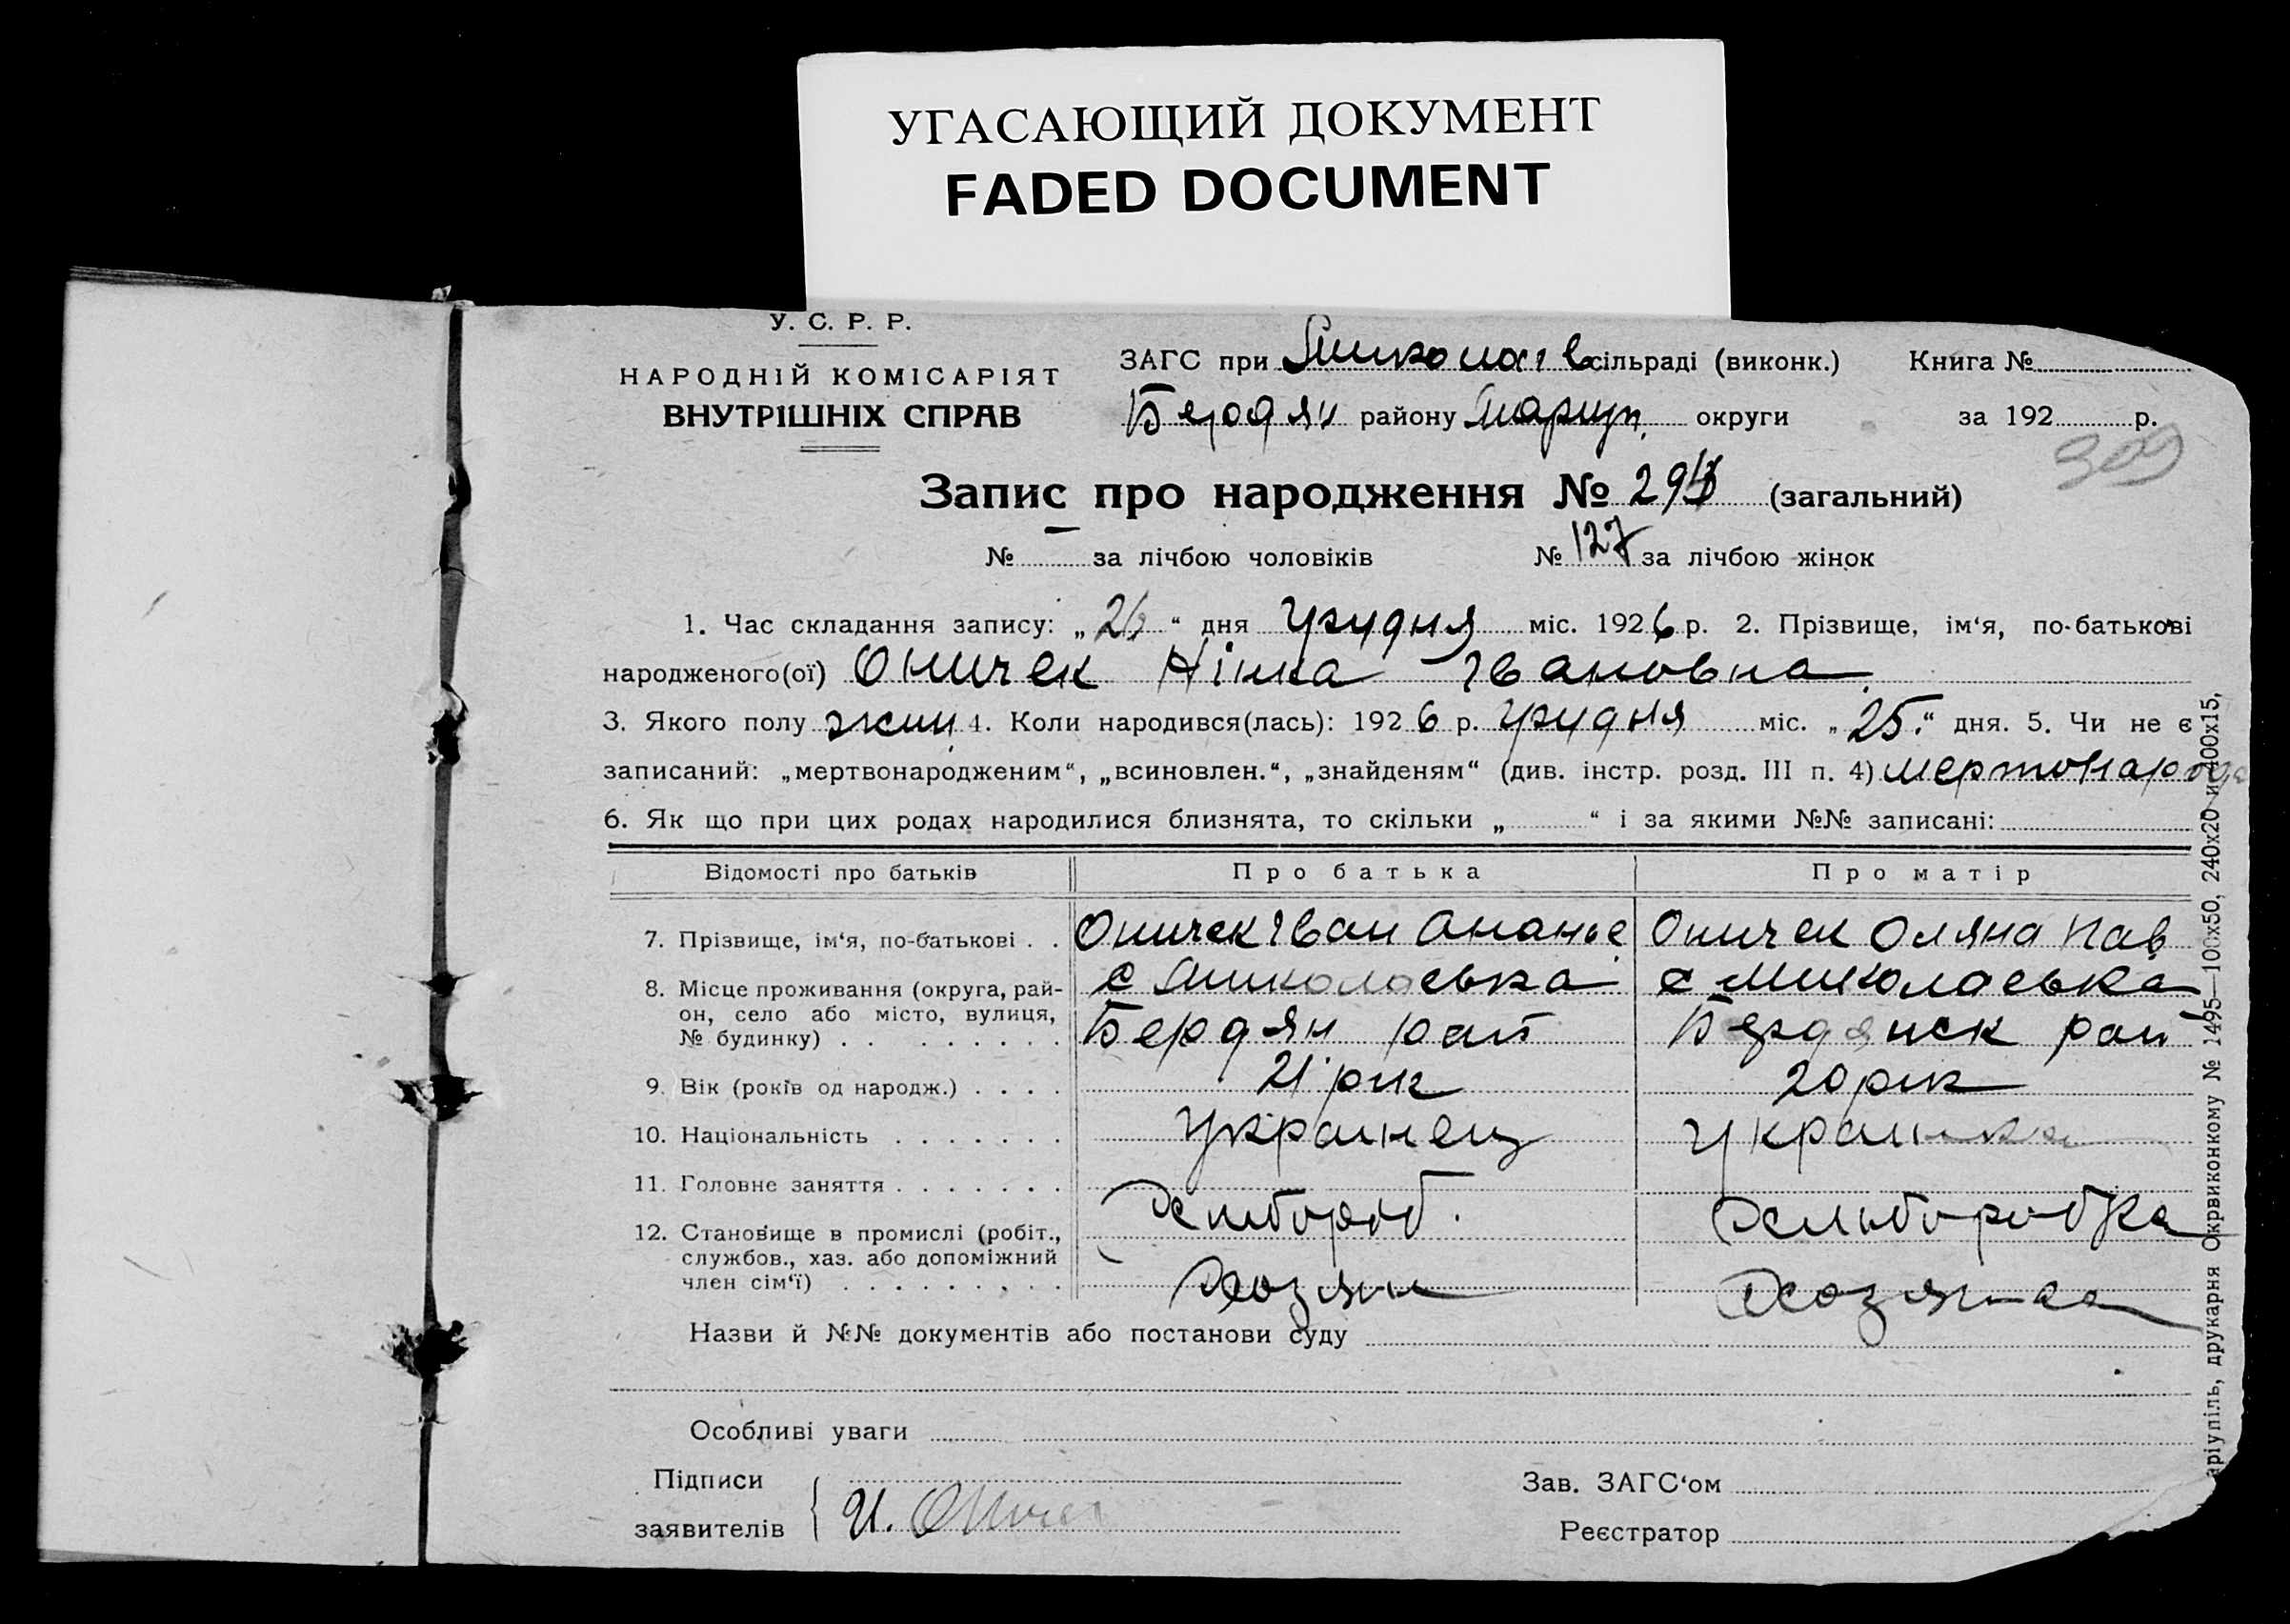 УГАСАЮЩИЙ ДОКУМЕНТ
FADED DOCUMENT
У. С. Р. Р.
НАРОДНІЙ КОМІСАРІЯТ
ВНУТРІШНІХ СПРАВ
ЗАГС при Миколаїв сільраді (виконк.) Книга №
Бердян району Маріуп. округи за 192 р.
309
Запис про народження № 294 (загальний)
№ — за лічбою чоловіків № 127 за лічбою жінок
1. Час складання запису: „26“ дня Грудня міс. 1926 р. 2. Прізвище, ім‘я, по-батькові
народженого(ої) Оничек Нінка Івановна
3. Якого полу жин. 4. Коли народився(лась): 1926 р. Грудня міс. „25.“ дня. 5. Чи не є
записаний: „мертвонародженим“, „всиновлен.“, „знайденям“ (див. інстр. розд. III п. 4) мертонарод
6. Як що при цих родах народилися близнята, то скільки „ “ і за якими №№ записані:
Відомості про батьків Про батька Про матір
7. Прізвище, ім‘я, по-батькові . . Оничек Іван Ананье Оничек Оляна Пав
8. Місце проживання (округа, рай- с Миколаевка с Миколаевка
он, село або місто, вулиця,
№ будинку) . . . . . . . . Бердян рай Бердянск рай
9. Вік (років од народж.) . . . . 21 рік 20 рік
10. Національність . . . . . . . Украинец Украинка
11. Головне заняття . . . . . . . Хлибороб. Хлиборобка
12. Становище в промислі (робіт.,
службов., хаз. або допоміжний
член сім‘ї) . . . . . . . . . Хозяин Хозяика
Назви й №№ документів або постанови суду
Особливі уваги
Підписи
заявителів И. Оничек
Зав. ЗАГС‘ом
Реєстратор
аріупіль, друкарня Окрвиконкому № 1495—100х50, 240х20 и 400х15,